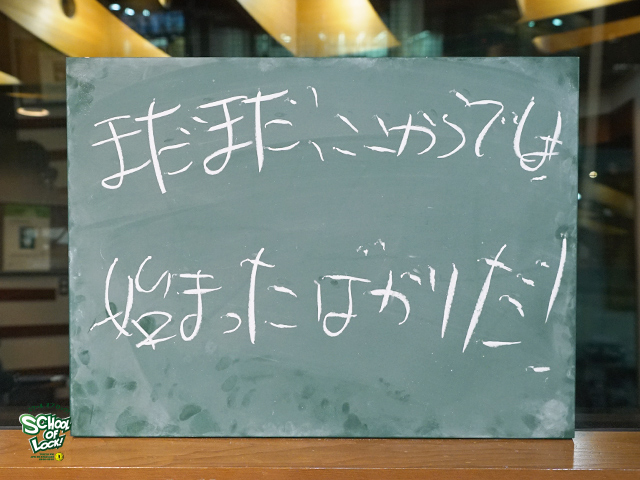 まだまだ、ここからで
始まったばかりだ!
SCHOOL
OF
LOCK!